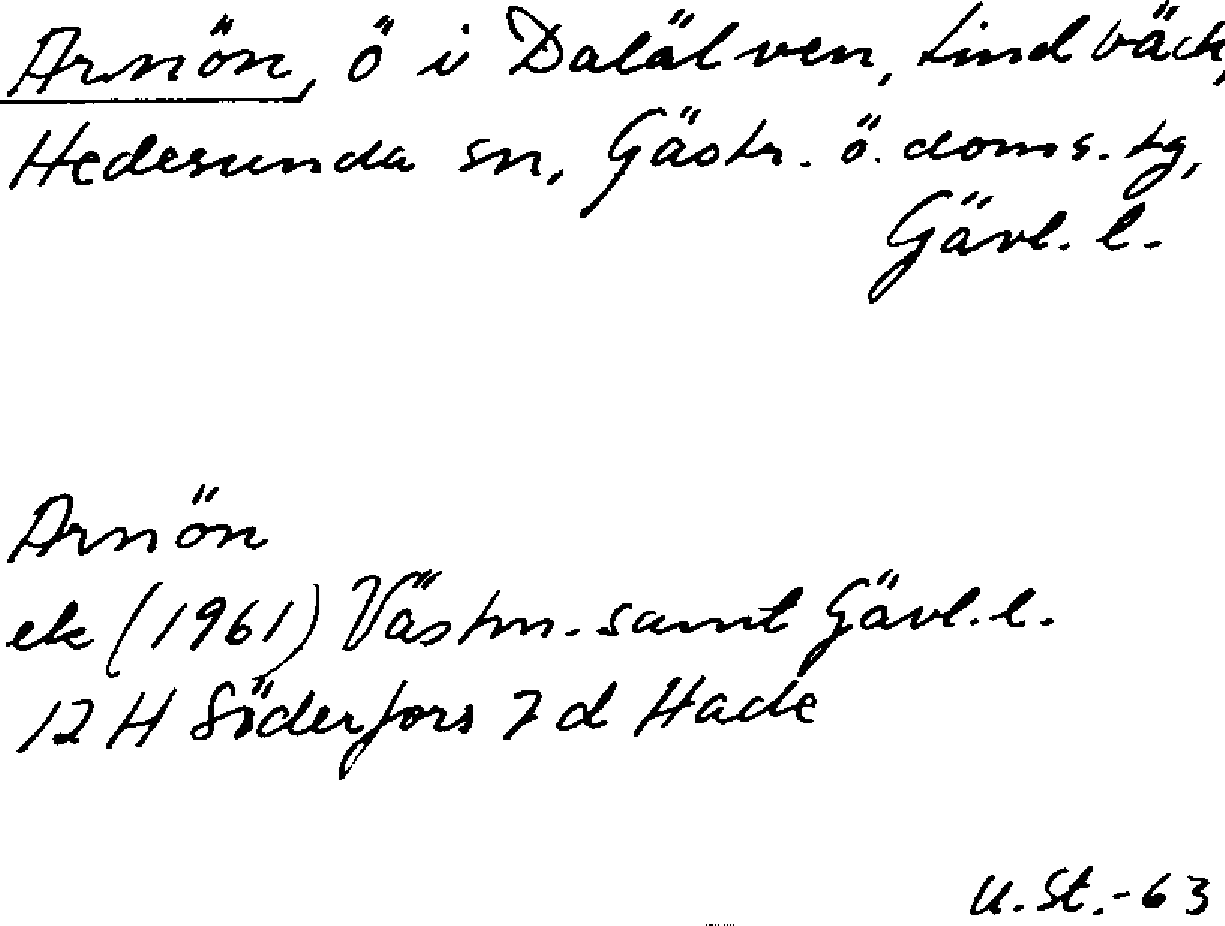 Arnön, ö i Dalälven, Lindbäck,
Hedesunda sn, Gästr. ö. doms. tg,
Gävl. l.
Arnön
ek (1961) Västm. samt Gävl. l.
12 H Söderfors 7 d Hade
U. St. -63